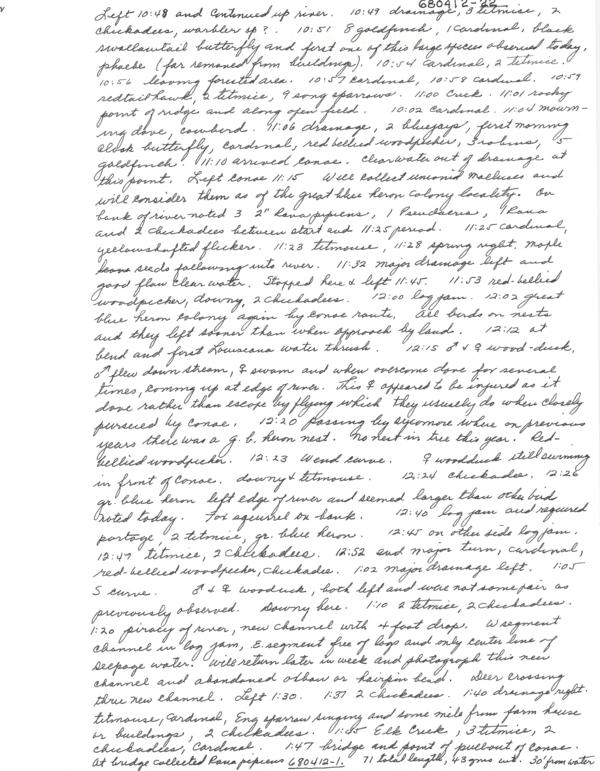 680412-22
Left 10:48 and continued up river. 10:49 drainage, 3 titmice, 2
chickadees, warbler sp?. 10:51 8 goldfinch, 1 cardinal, black
swallowtail butterfly and first one of this large species observed today,
phoebe (far removed from buildings). 10:54 cardinal, 2 titmice.
10:56 leaving forested area. 10:57 cardinal, 10:58 cardinal. 10:59
redtail hawk, 2 titmice, 9 song sparrows. 11:00 creek. 11:01 rocky
point of ridge and along open field. 10:02 cardinal. 11:04 mourn-
ing dove, cowbird. 11:06 drainage, 2 bluejays, first morning
cloak butterfly, cardinal, red bellied woodpecker, 3 robins, 5
goldfinch. 11:10 arrived canoe. Clear water out of drainage at
this point. Left canoe 11:15 Will collect unionid molluscs and
will consider them as of the great blue heron colony locality. On
bank of river noted 3 2" Rana pipiens, 1 Pseudacris, 1 Rana
and 2 chickadees between start and 11:25 period. 11:25 cardinal,
yellowshafted flicker. 11:23 titmouse, 11:28 spring right, maple
seeds following into river. 11:32 major drainage left and
good flow clear water. Stopped here & left 11:45. 11:53 red-bellied
woodpecker, downy, 2 chickadees. 12:00 log jam. 12:02 great
blue heron colony again by canoe route. All birds on nests
and they left sooner than when approach by land. 12:12 at
bend and first Louisiana water thrush. 12:15 ♂ & ♀ wood-duck,
♂ flew down stream, ♀ swam and when overcome dove for several
times, coming up at edge of river. This ♀ appeared to be injured as it
dove rather than escape by flying which they usually do when closely
pursued by canoe. 12:20 passing by sycomore where on previous
years there was a g. b. heron nest. No nest in tree this year. Red-
bellied woodpecker. 12:23 W end curve. ♀ woodduck still swimming
in front of canoe. downy & titmouse. 12:24 chickadee, 12:26
gr. blue heron left edge of river and seemed larger than other bird
noted today. Fox squirrel on bank. 12:40 log jam and required
portage, 2 titmice, gr. blue heron. 12:45 on other side log jam.
12:47 titmice, 2 chickadees. 12:52 end major turn, cardinal,
red-bellied woodpecker, chickadee. 1:02 major drainage left. 1:05
S curve. ♂ & ♀ woodduck, both left and were not same pair as
previously observed. Downy here. 1:10 2 titmice, 2 chickadees.
1:20 piracy of river, new channel with 4 foot drop. W segment
channel in log jam, E. segment free of logs and only center line of
seepage water. Will return later in week and photograph this new
channel and abandoned oxbow or hairpin bend. Deer crossing
thru new channel. Left 1:30. 1:37 2 chickadees. 1:40 drainage right.
titmouse, cardinal, Eng sparrow singing and some mile from farm house
or buildings, 2 chickadees. 1:45 Elk Creek, 3 titmice, 2
chickadees, cardinal. 1:47 bridge and point of pullout of canoe.
At bridge collected Rana pipiens 680412-1. 71 total length, 43 gms wt. 30' from water